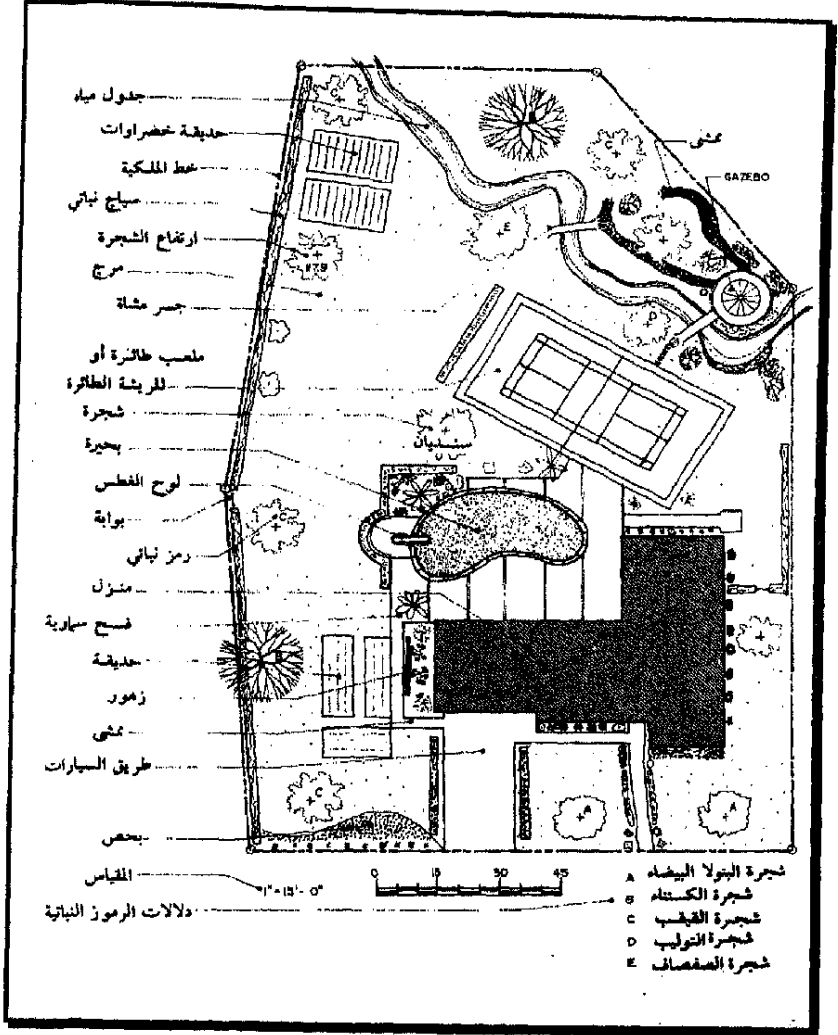 جدول مياه
حديقة خضراوات
خط الملكية
سياج نباتي
ارتفاع الشجرة
مرج
جسر مشاة
ملعب طائرة أو
للريشة الطائرة
شجرة
بحيرة
لوح الغطس
بوابة
رمز نباتي
منزل
فسح سماوية
حديقة
زهور
ممشى
طريق السيارات
بحص
المقياس
دلالات الرموز النباتية
ممشى
GAZEBO
C
C
E
C
D
سنديان
C
C
A
A
1"=15'-0"
0 15 45
A شجرة البتولا البيضاء
B شجرة الكستناء
C شجرة القيقب
D شجرة التوليب
E شجرة الصفصاف